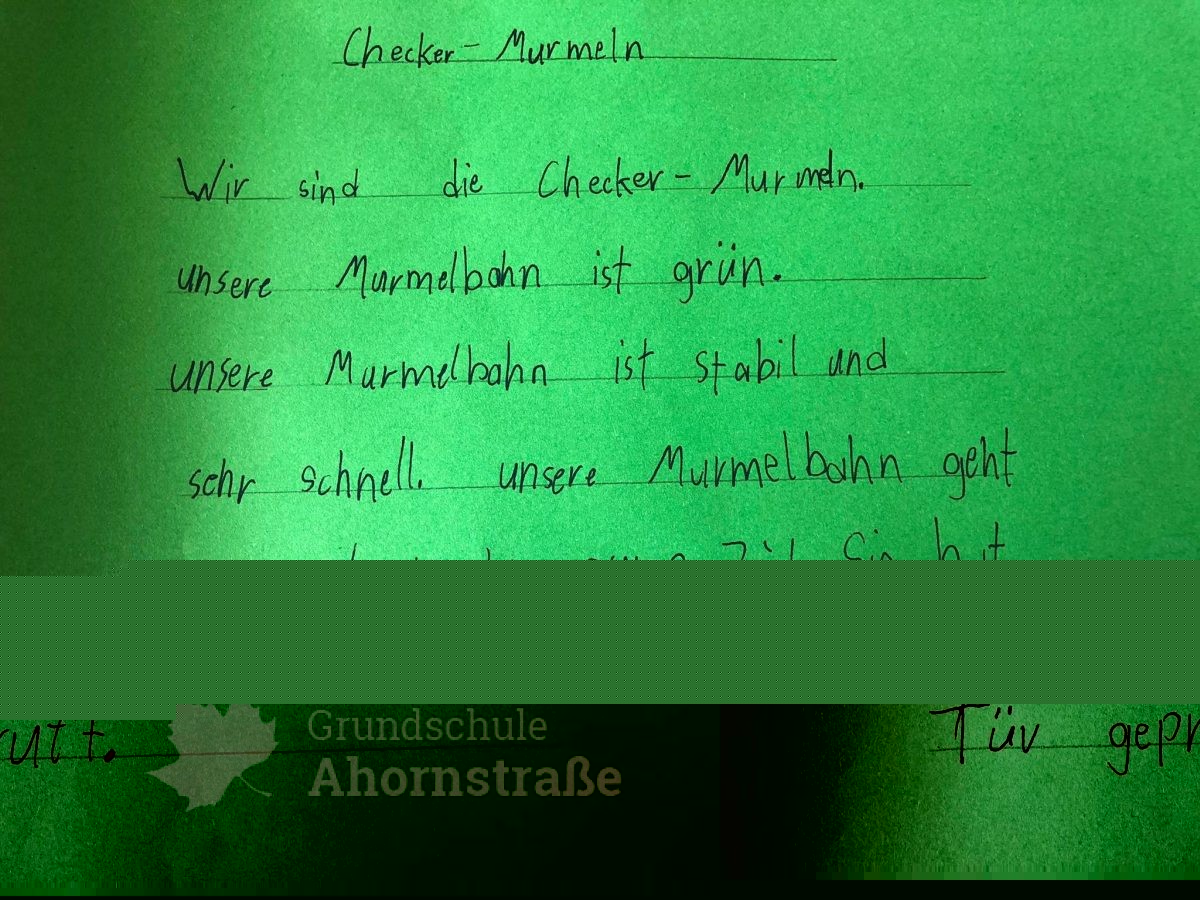 Checker-Murmeln
Wir sind die Checker-Murmeln.
unsere Murmelbahn ist grün.
unsere Murmelbahn ist stabil und
sehr schnell. unsere Murmelbahn geht
Grundschule
Ahornstraße
Tüv